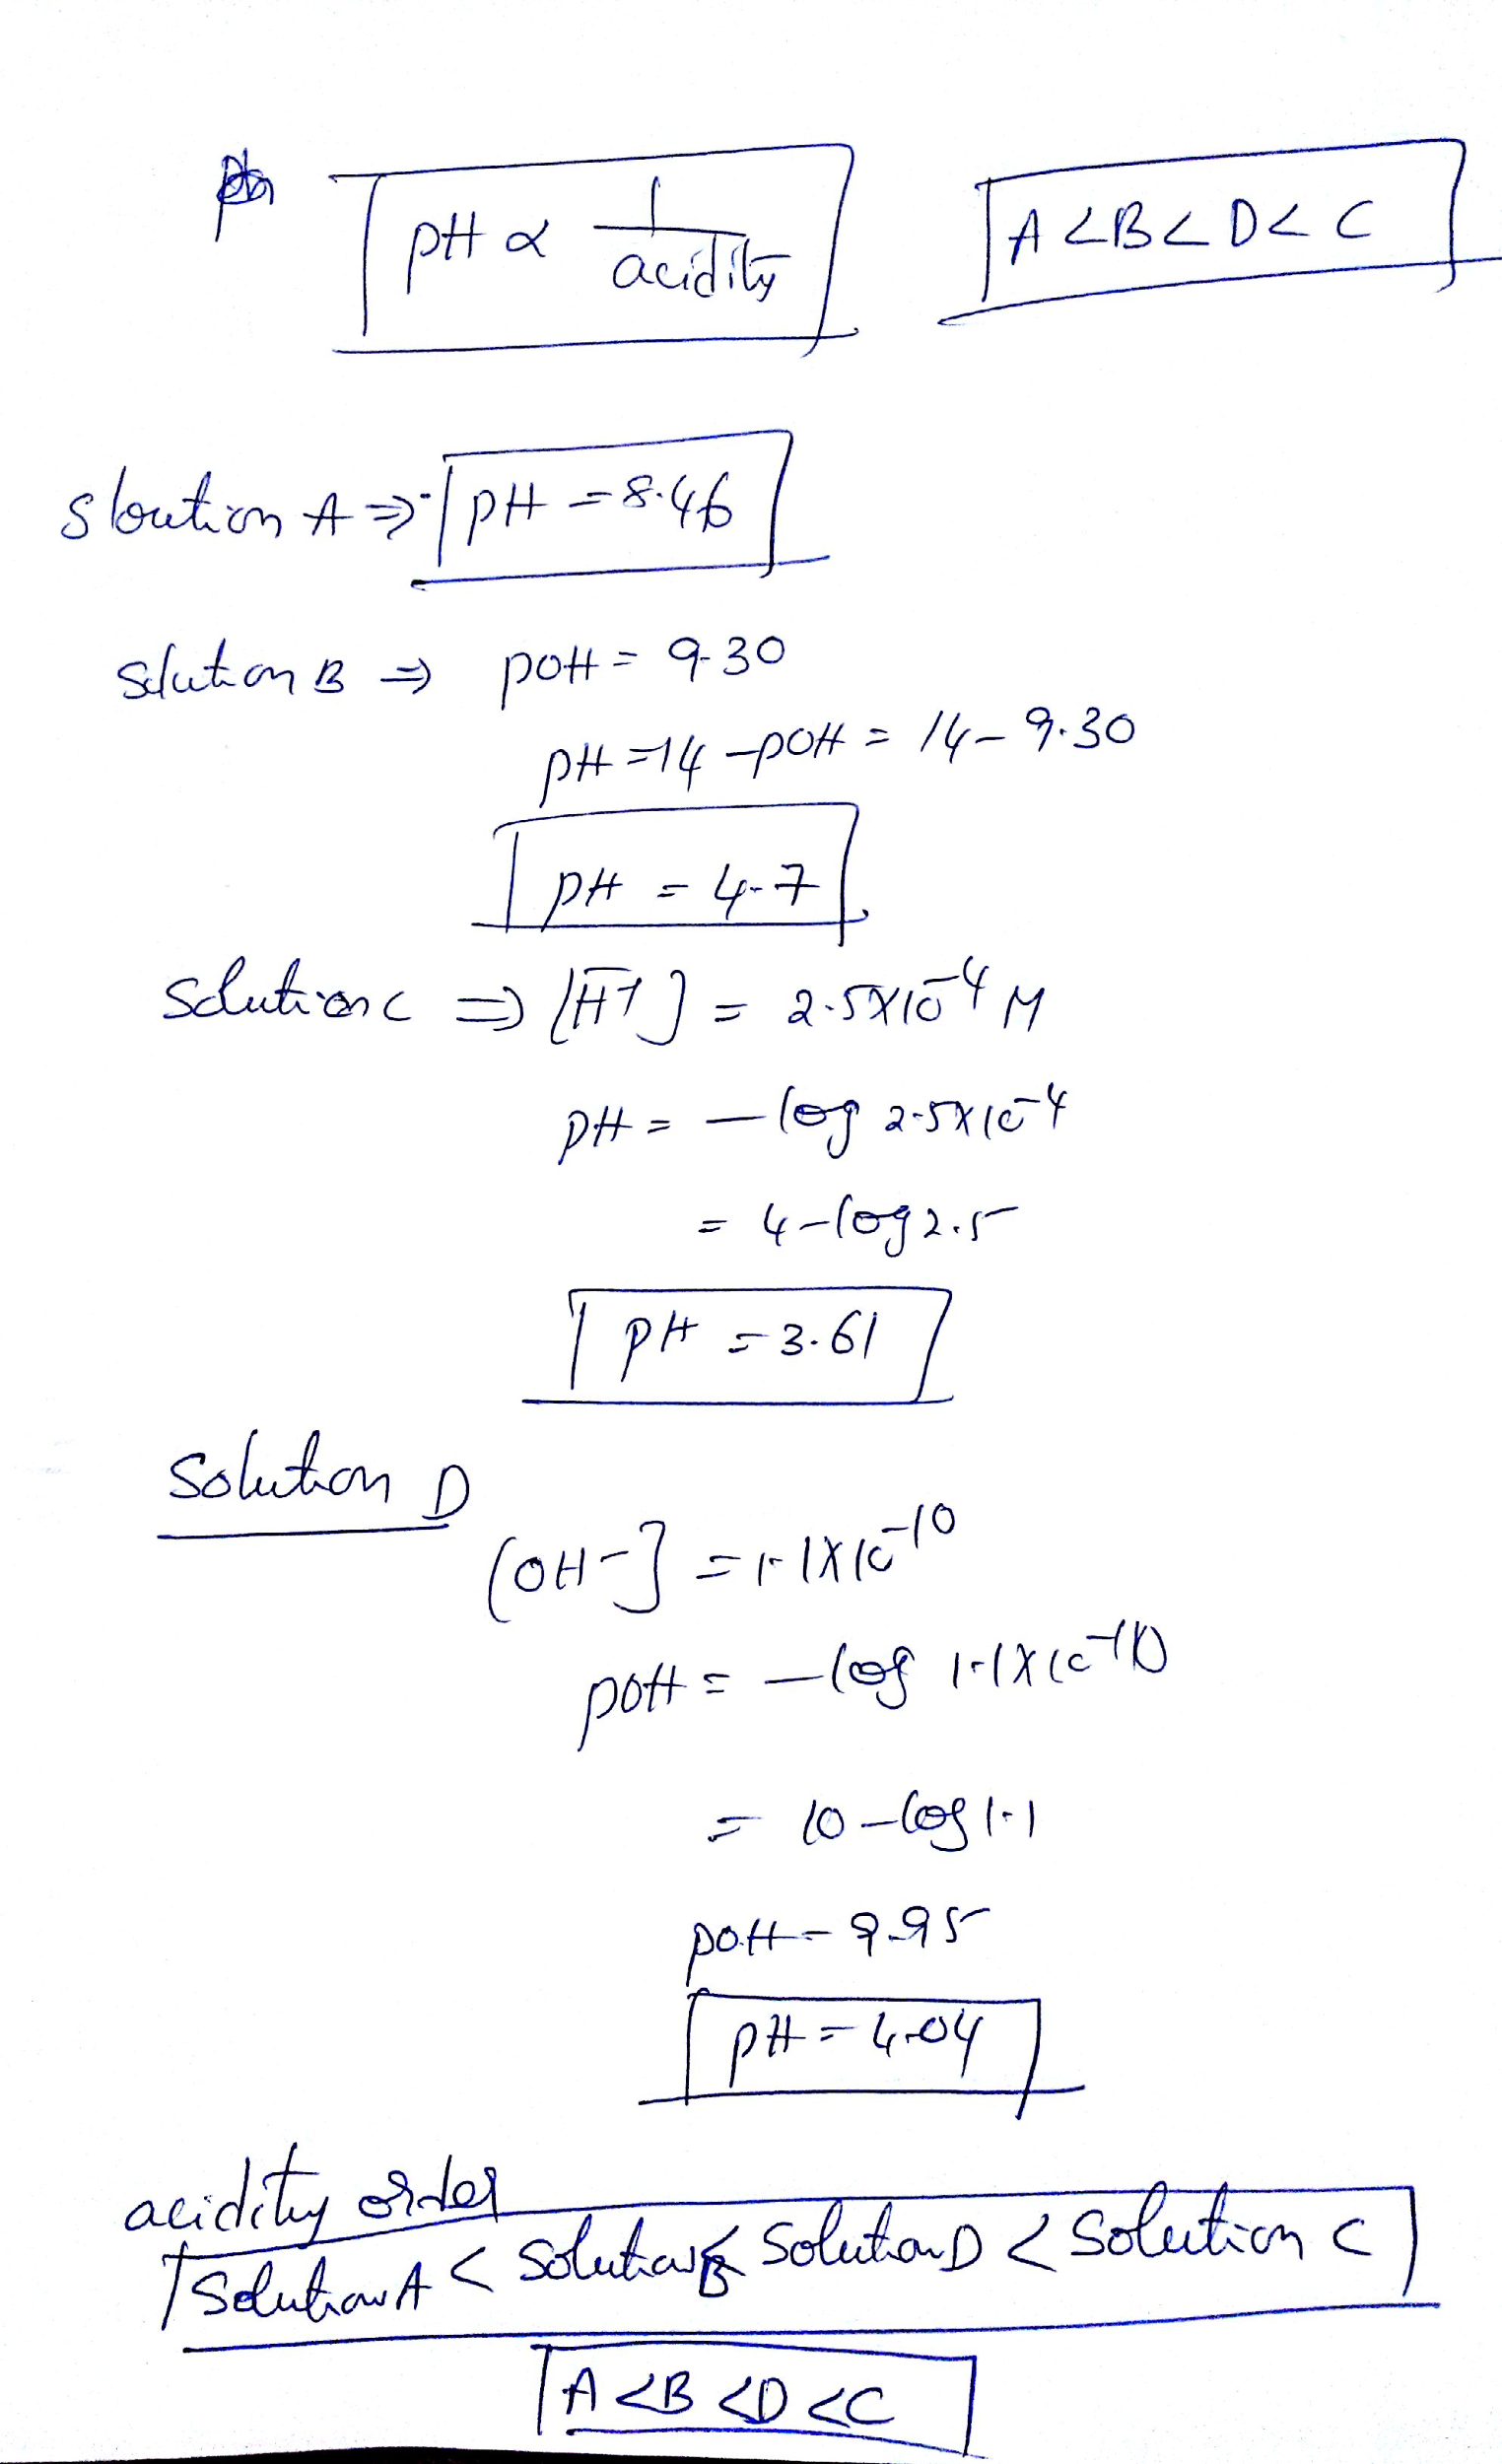 pH ∝ 1/acidity
A<B<D<C
sloution A ⇒ pH = 8.46
Solution B ⇒ pOH = 9.30
pH = 14 - pOH = 14 - 9.30
pH = 4.7
Solution c ⇒ [H+] = 2.5×10^-4 M
pH = - log 2.5×10^-4
= 4 - log 2.5
pH = 3.61
Solution D
[OH-] = 1.1×10^-10
pOH = - log 1.1×10^-10
= 10 - log 1.1
pOH = 9.95
pH = 4.04
acidity order
Solution A < Solution B < Solution D < Solution C
A<B<D<C